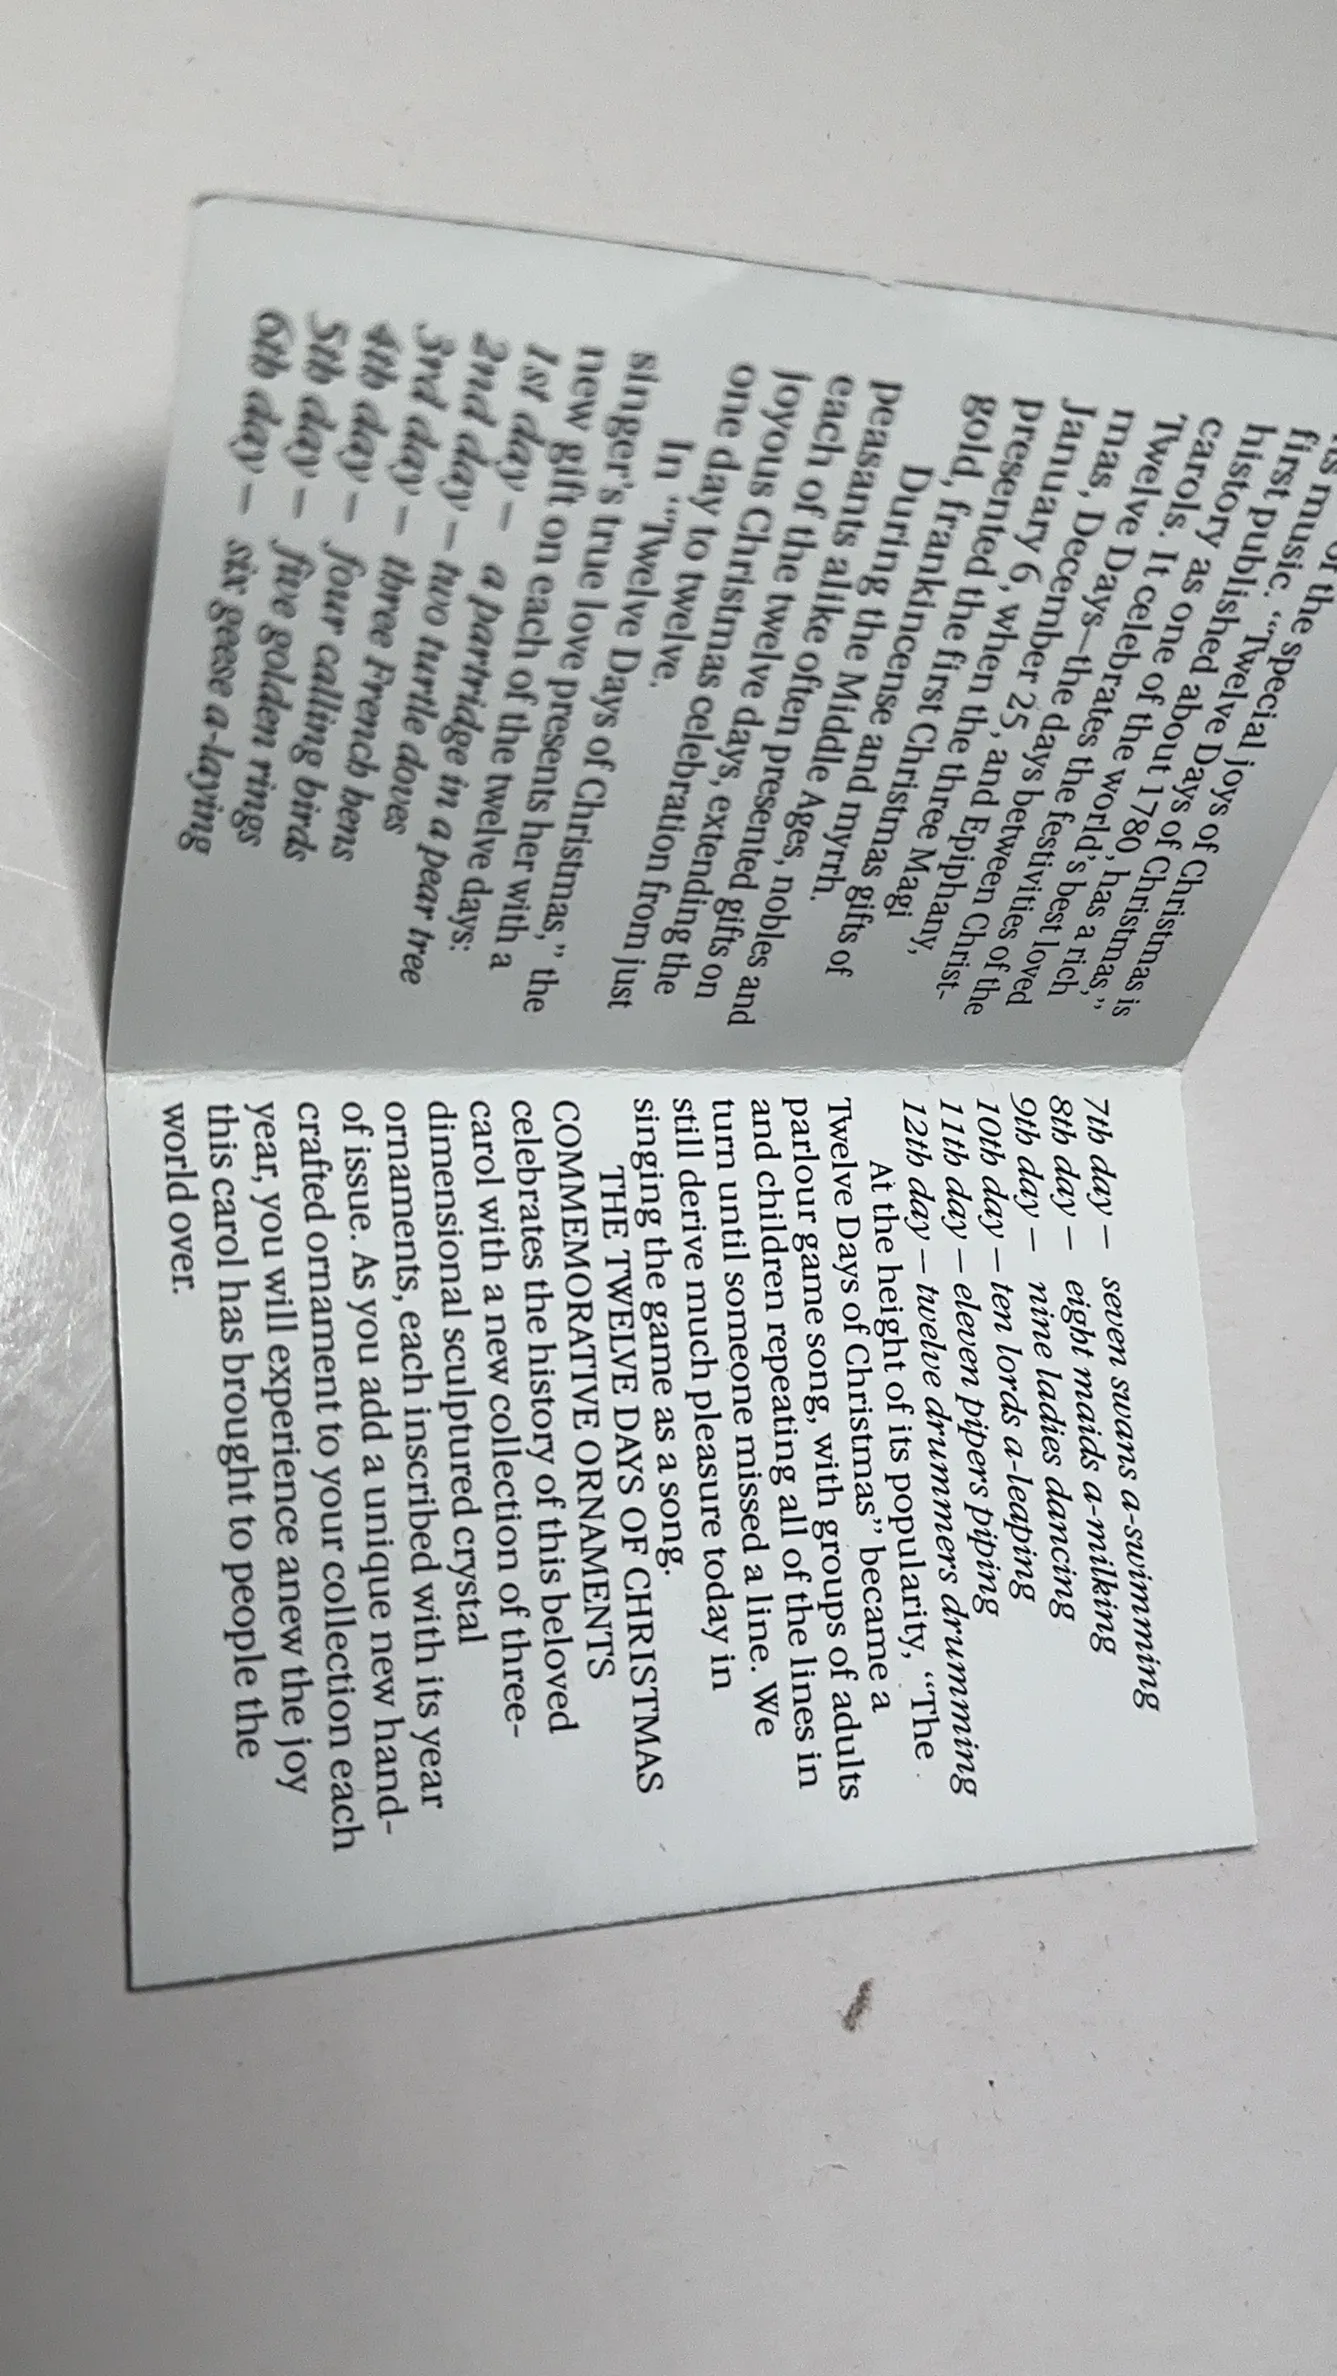 of the special joys of Christmas is
its music. “Twelve Days of Christmas,”
first published about 1780, has a rich
history as one of the world’s best loved
carols. It celebrates the festivities of the
Twelve Days—the days between Christ-
mas, December 25, and Epiphany,
January 6, when the three Magi
presented the first Christmas gifts of
gold, frankincense and myrrh.
During the Middle Ages, nobles and
peasants alike often presented gifts on
each of the twelve days, extending the
joyous Christmas celebration from just
one day to twelve.
In “Twelve Days of Christmas,” the
singer’s true love presents her with a
new gift on each of the twelve days:
1st day – a partridge in a pear tree
2nd day – two turtle doves
3rd day – three French hens
4th day – four calling birds
5th day – five golden rings
6th day – six geese a-laying
7th day – seven swans a-swimming
8th day – eight maids a-milking
9th day – nine ladies dancing
10th day – ten lords a-leaping
11th day – eleven pipers piping
12th day – twelve drummers drumming
At the height of its popularity, “The
Twelve Days of Christmas” became a
parlour game song, with groups of adults
and children repeating all of the lines in
turn until someone missed a line. We
still derive much pleasure today in
singing the game as a song.
THE TWELVE DAYS OF CHRISTMAS
COMMEMORATIVE ORNAMENTS
celebrates the history of this beloved
carol with a new collection of three-
dimensional sculptured crystal
ornaments, each inscribed with its year
of issue. As you add a unique new hand-
crafted ornament to your collection each
year, you will experience anew the joy
this carol has brought to people the
world over.